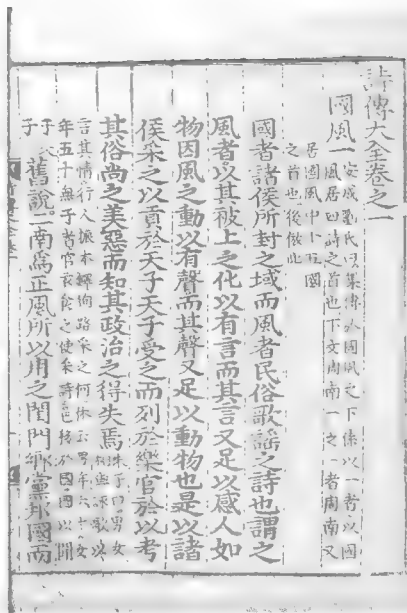 詩傳大全卷之一
國風一
安成劉氏曰集傳於國風之下係以一者以國
風居四詩之首也下文周南一之一者周南又
居國風中十五國
之首也後倣此
國者諸侯所封之域而風者民俗歌謠之詩也謂之
風者以其被上之化以有言而其言又足以感人如
物因風之動以有聲而其聲又足以動物也是以諸
侯采之以貢於天子天子受之而列於樂官於以考
其俗尚之美惡而知其政治之得失焉
朱子曰男女
相與詠歌以
言其情行人振木鐸徇路采之何休云男年六十女
年五十無子者官衣食之使采詩邑移於國國以聞
舊說二南爲正風所以用之閨門鄉黨邦國而